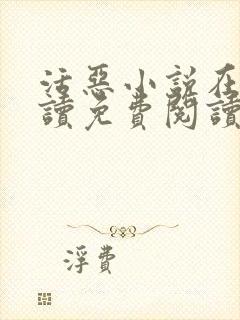 活惡小說在
讀免費閱讀
浮費